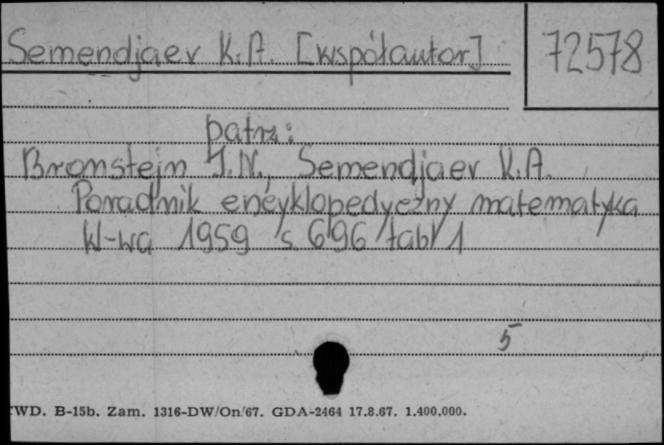 Semendjaev K.A. [współautor]
72578
patrz:
Bronstejn I.N., Semendjaev K.A.
Poradnik encyklopedyczny matematyka
W-wa 1959 s 696 tabl 1
5
WD. B-15b. Zam. 1316-DW/On/67. GDA-2464 17.8.67. 1.400.000.